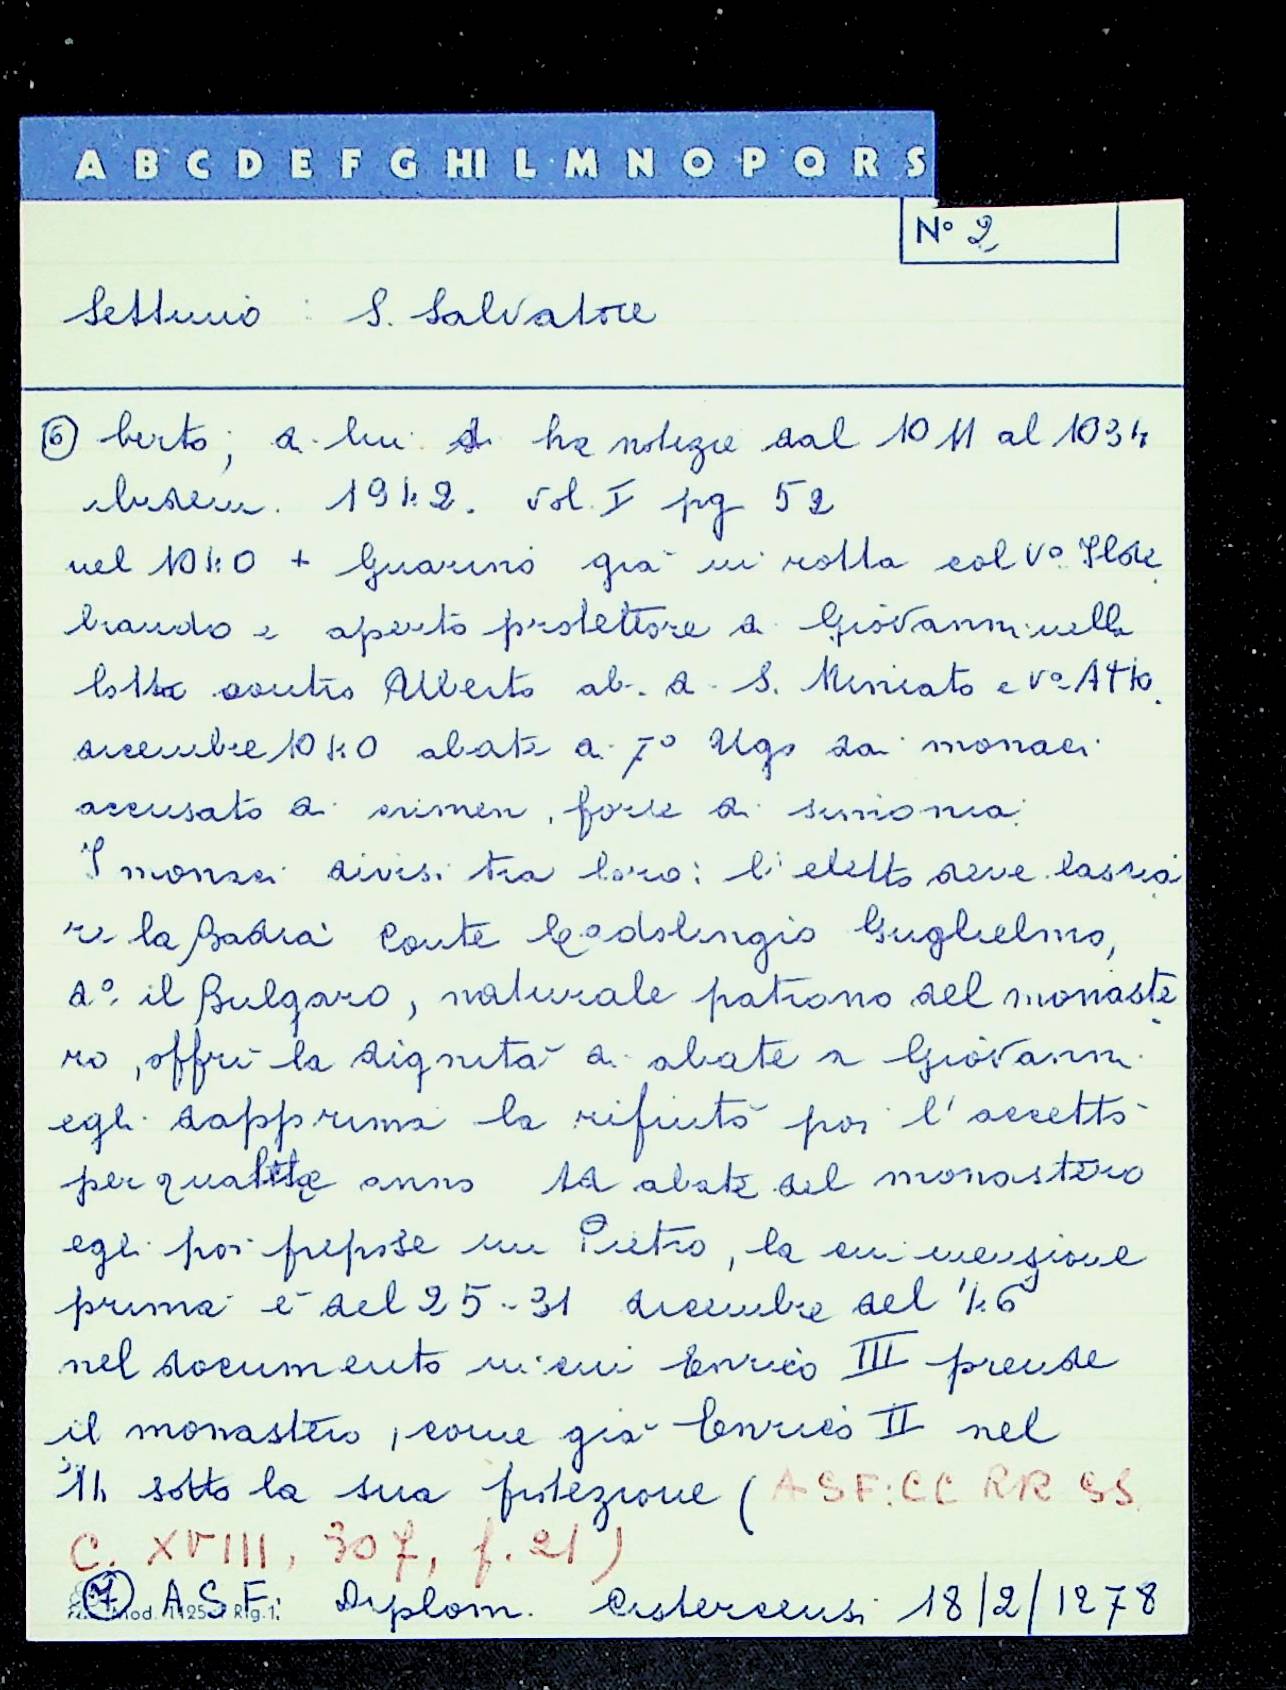 A B C D E F G HI L M N O P Q R S
N° 2
Settimo : S. Salvatore
⑥ berto; di lui si ha notizie dal 1011 al 1034
ibidem. 1942. vol. I pg 52
nel 1040 + Guarino già in rotta col v° Ilde
brando e aperto protettore di Giovanni nella
lotta contro Alberto ab. di S. Miniato e v° Atto.
dicembre 1040 abate di 7° Ugo dai monaci
accusato di crimen, forse di simonia.
I monaci divisi tra loro: l'eletto deve lascia
re la Badia Conte Cadolingio Guglielmo,
d° il Bulgaro, naturale patrono del monaste
ro, offrì la dignità di abate a Giovanni
egli dapprima la rifiutò poi l'accettò
per qualche anno Ad abate del monastero
egli poi prepose un Pietro, la cui menzione
prima è del 25-31 dicembre del '46
nel documento in cui Enrico III prende
il monastero, come già Enrico II nel
'14 sotto la sua protezione (ASF: CC RR SS
C. XVIII, 307, f. 21)
⑦ A S F: Diplom. Cistercensi 18/2/1278